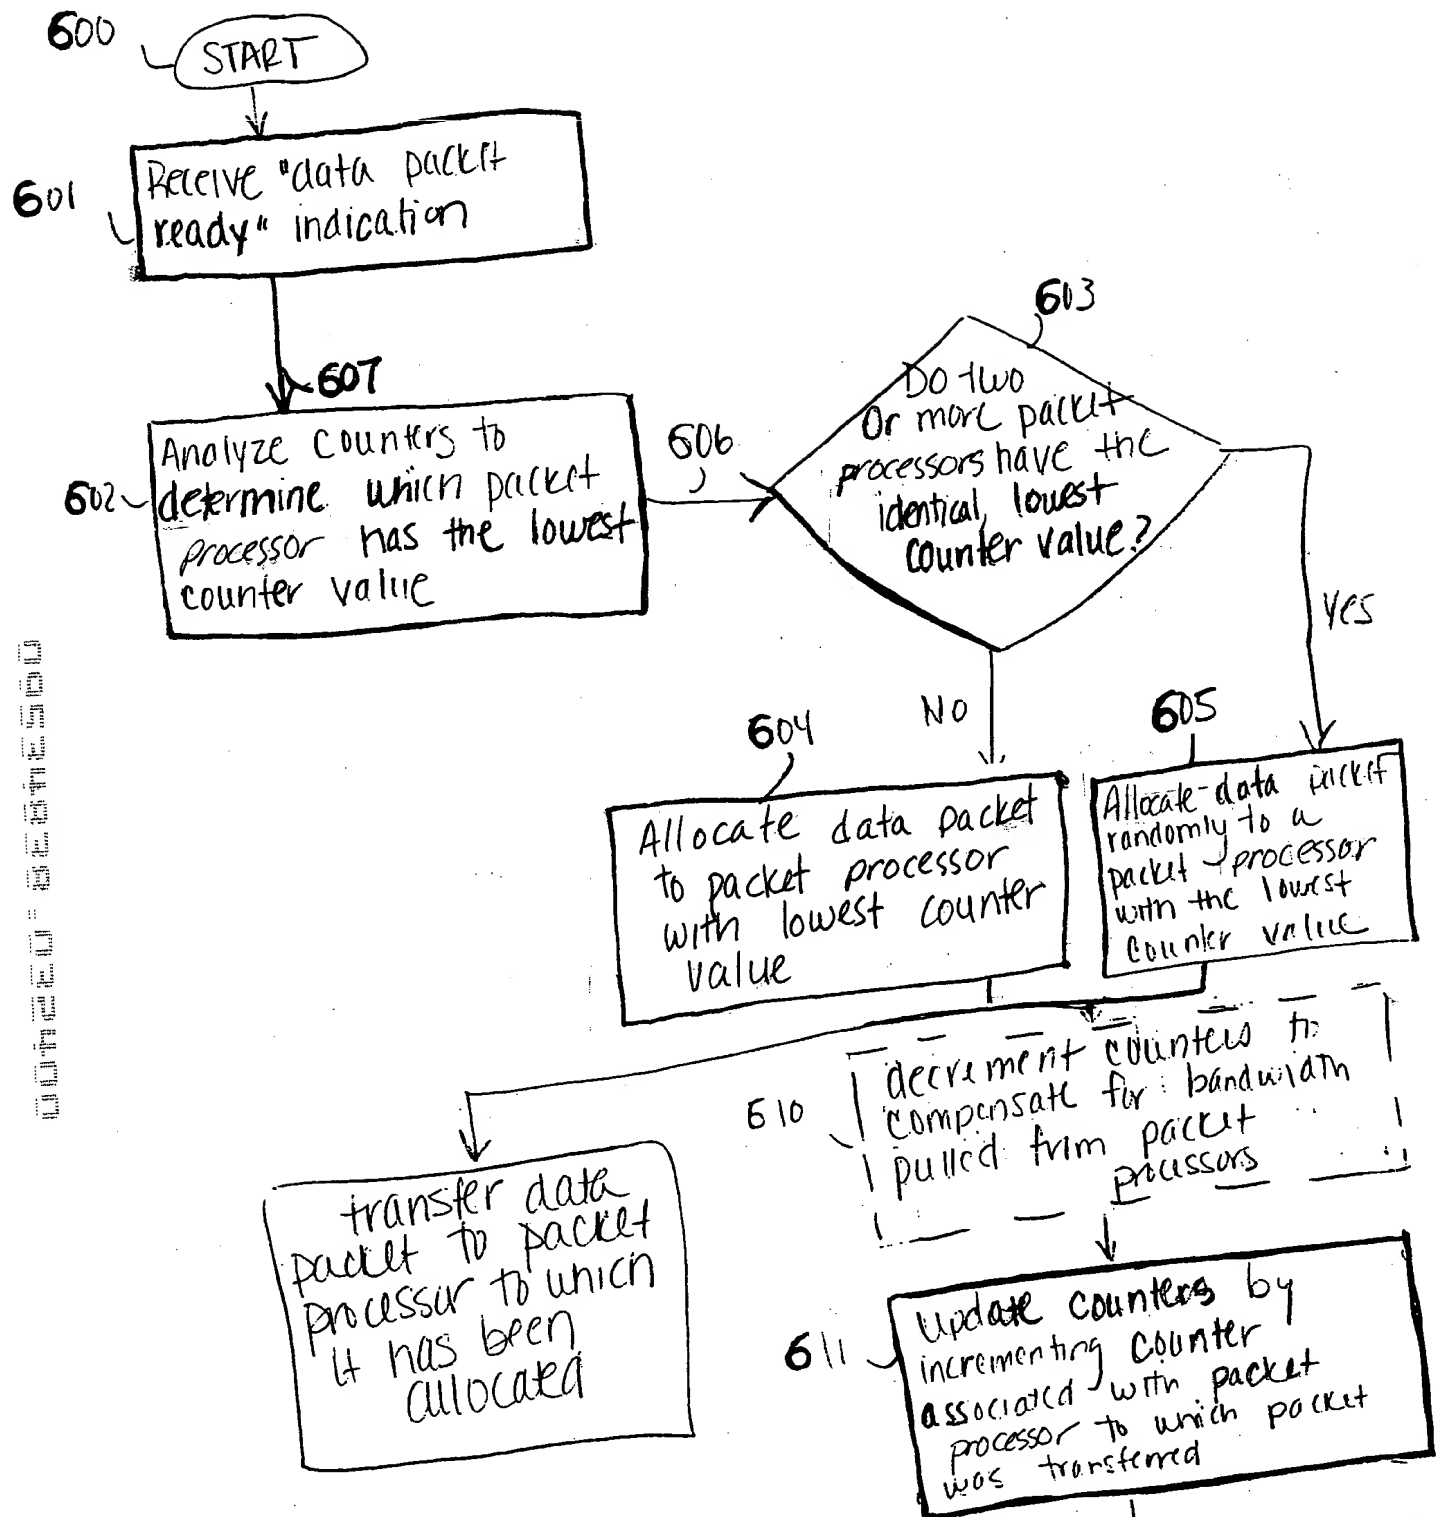 600
START
601
Receive "data packet
ready" indication
607
602
Analyze counters to
determine which packet
processor has the lowest
counter value
606
603
Do two
Or more packet
processors have the
identical, lowest
counter value?
Yes
No
604
Allocate data packet
to packet processor
with lowest counter
value
605
Allocate data packet
randomly to a
packet processor
with the lowest
counter value
610
decrement counters to
compensate for bandwidth
pulled from packet
processors
transfer data
packet to packet
processor to which
it has been
allocated
611
Update counters by
incrementing counter
associated with packet
processor to which packet
was transferred